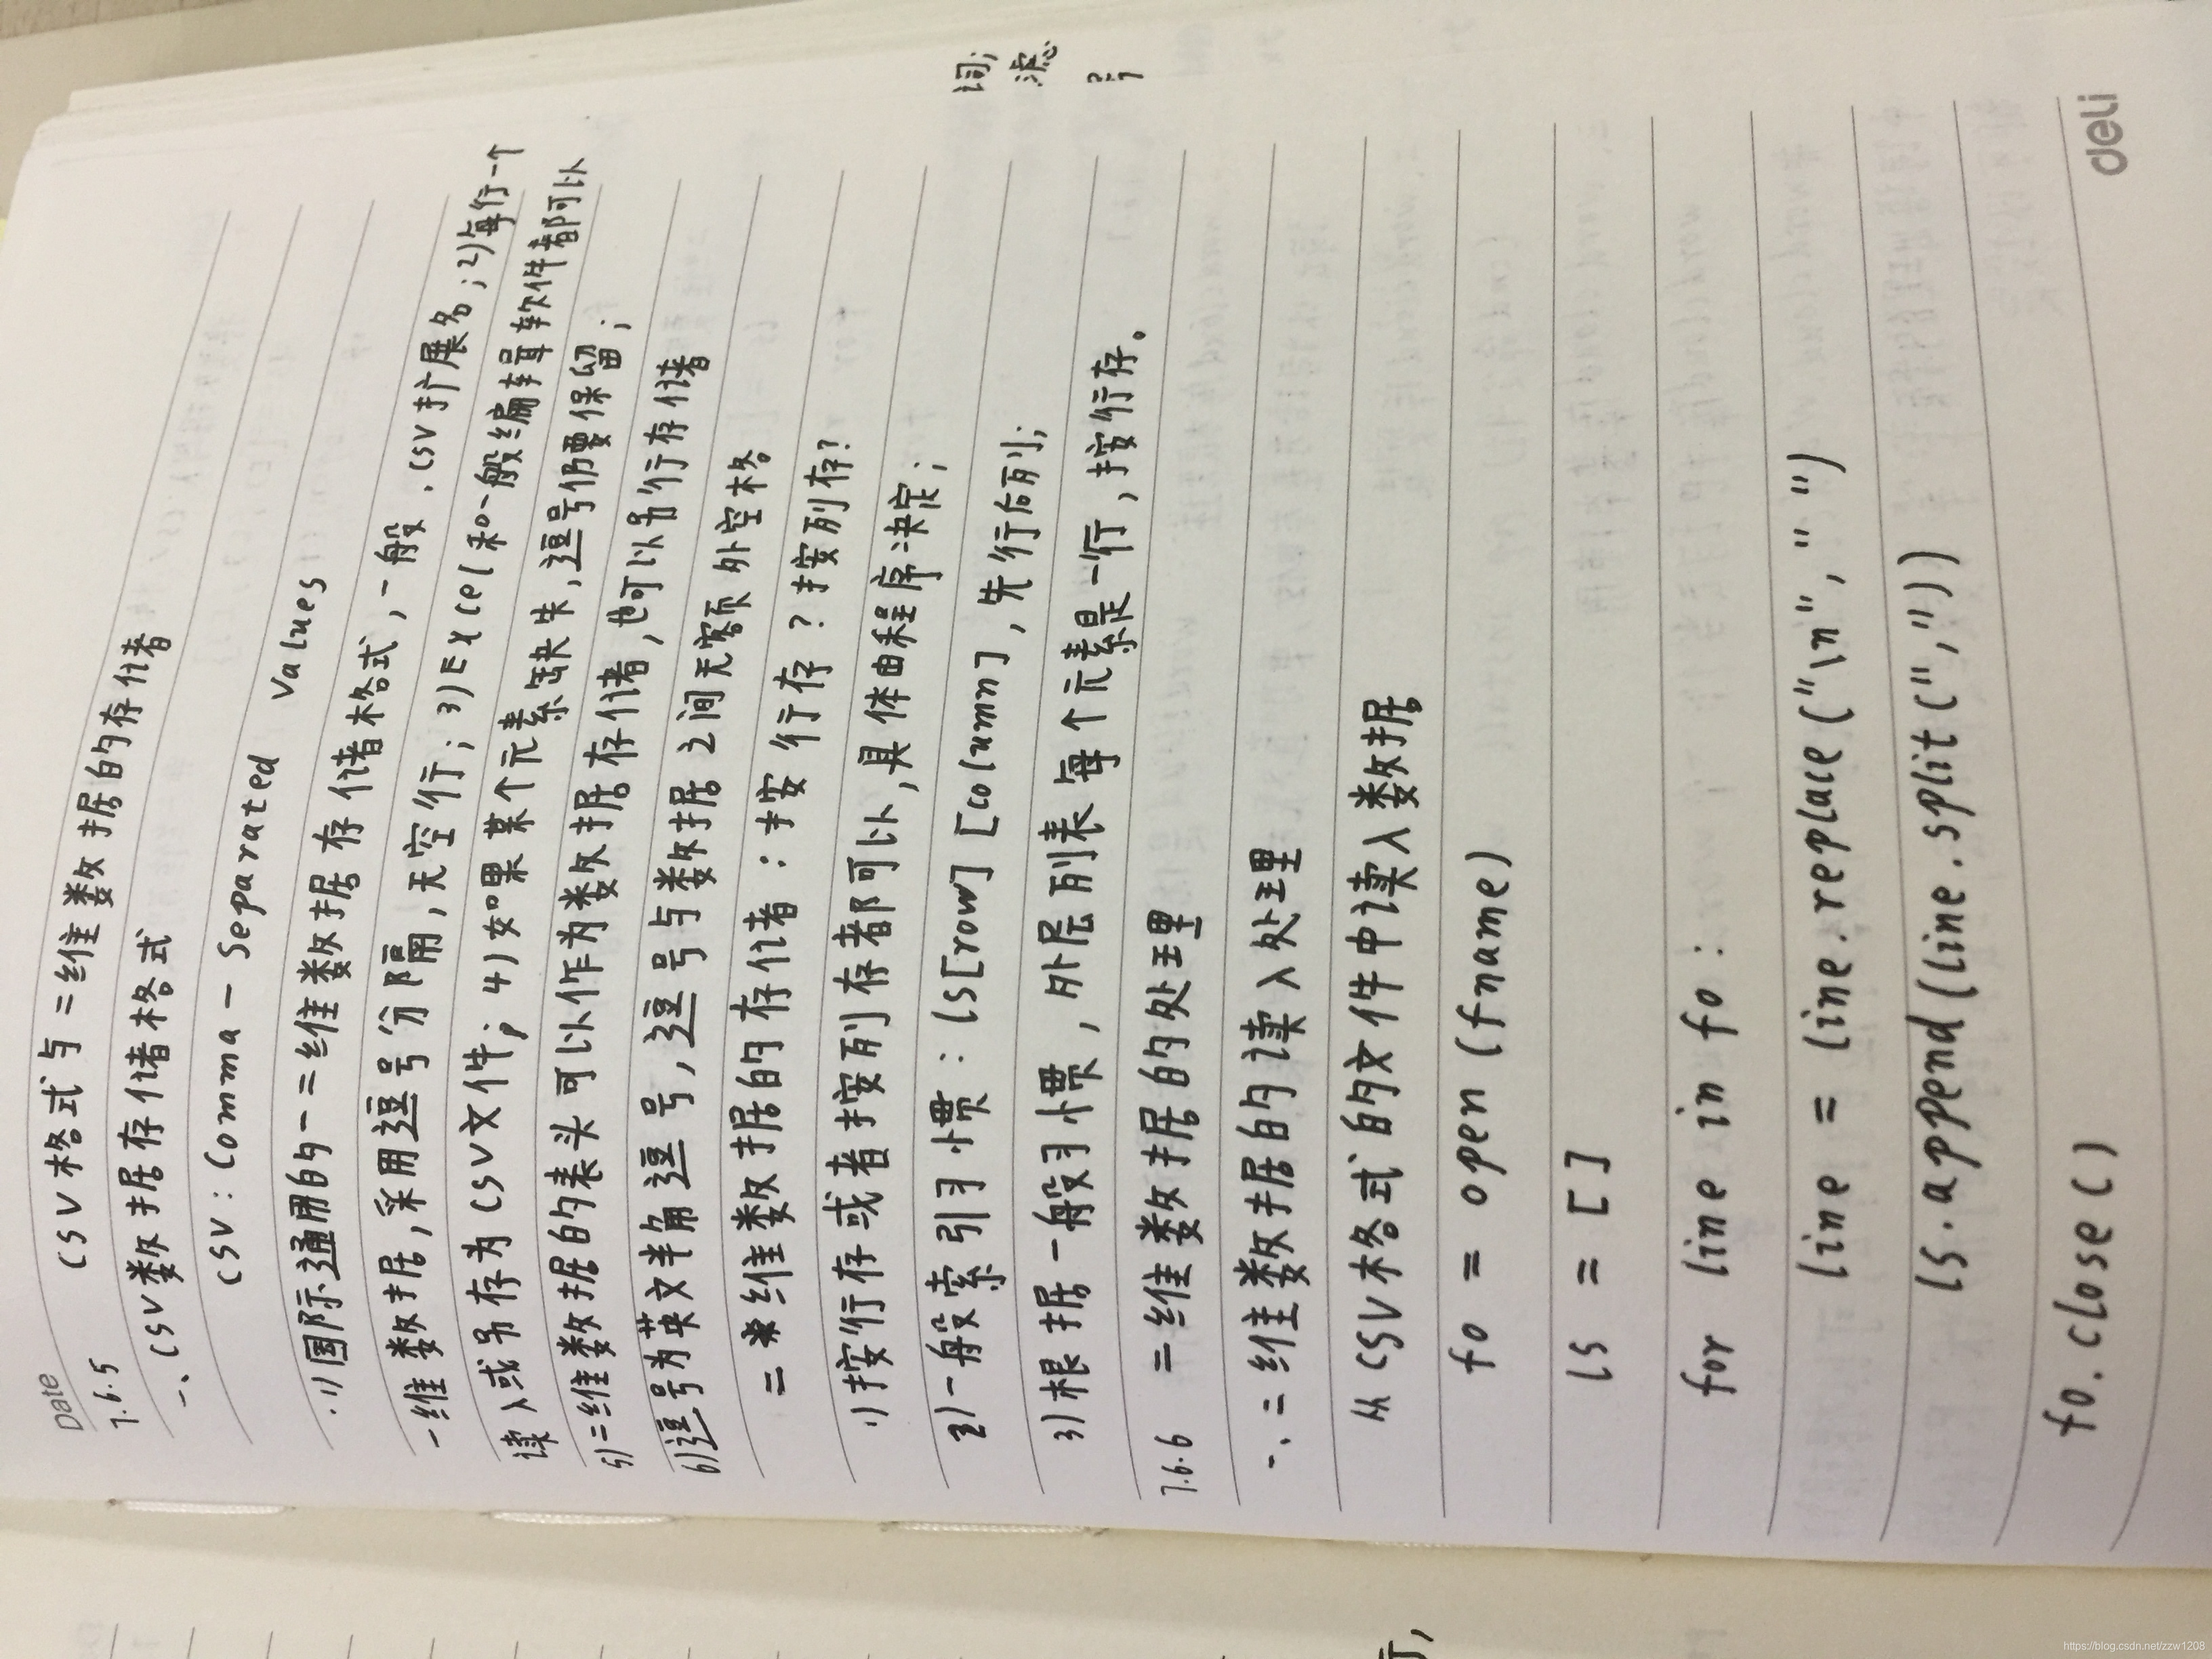 Date
7.6.5 CSV格式与二维数据的存储
一、CSV数据存储格式
CSV：Comma－Separated Values
1)国际通用的一二维数据存储格式,一般.csv扩展名;2)每行一个
一维数据,采用逗号分隔,无空行;3)Excel和一般编辑软件都可以
读入或另存为CSV文件;4)如果某个元素缺失,逗号仍要保留;
5)二维数据的表头可以作为数据存储,也可以另行存储
6)逗号为英文半角逗号,逗号与数据之间无额外空格
二维数据的存储:按行存?按列存?
1)按行存或者按列存都可以,具体由程序决定;
2)一般索引习惯:ls[row][column],先行后列;
3)根据一般习惯,外层列表每个元素是一行,按行存。
7.6.6 二维数据的处理
一、二维数据的读入处理
从CSV格式的文件中读入数据
fo = open (fname)
ls = []
for line in fo:
line = line.replace("\n","")
ls.append(line.split(","))
fo.close()
deli
词;
https://blog.csdn.net/zzw1208